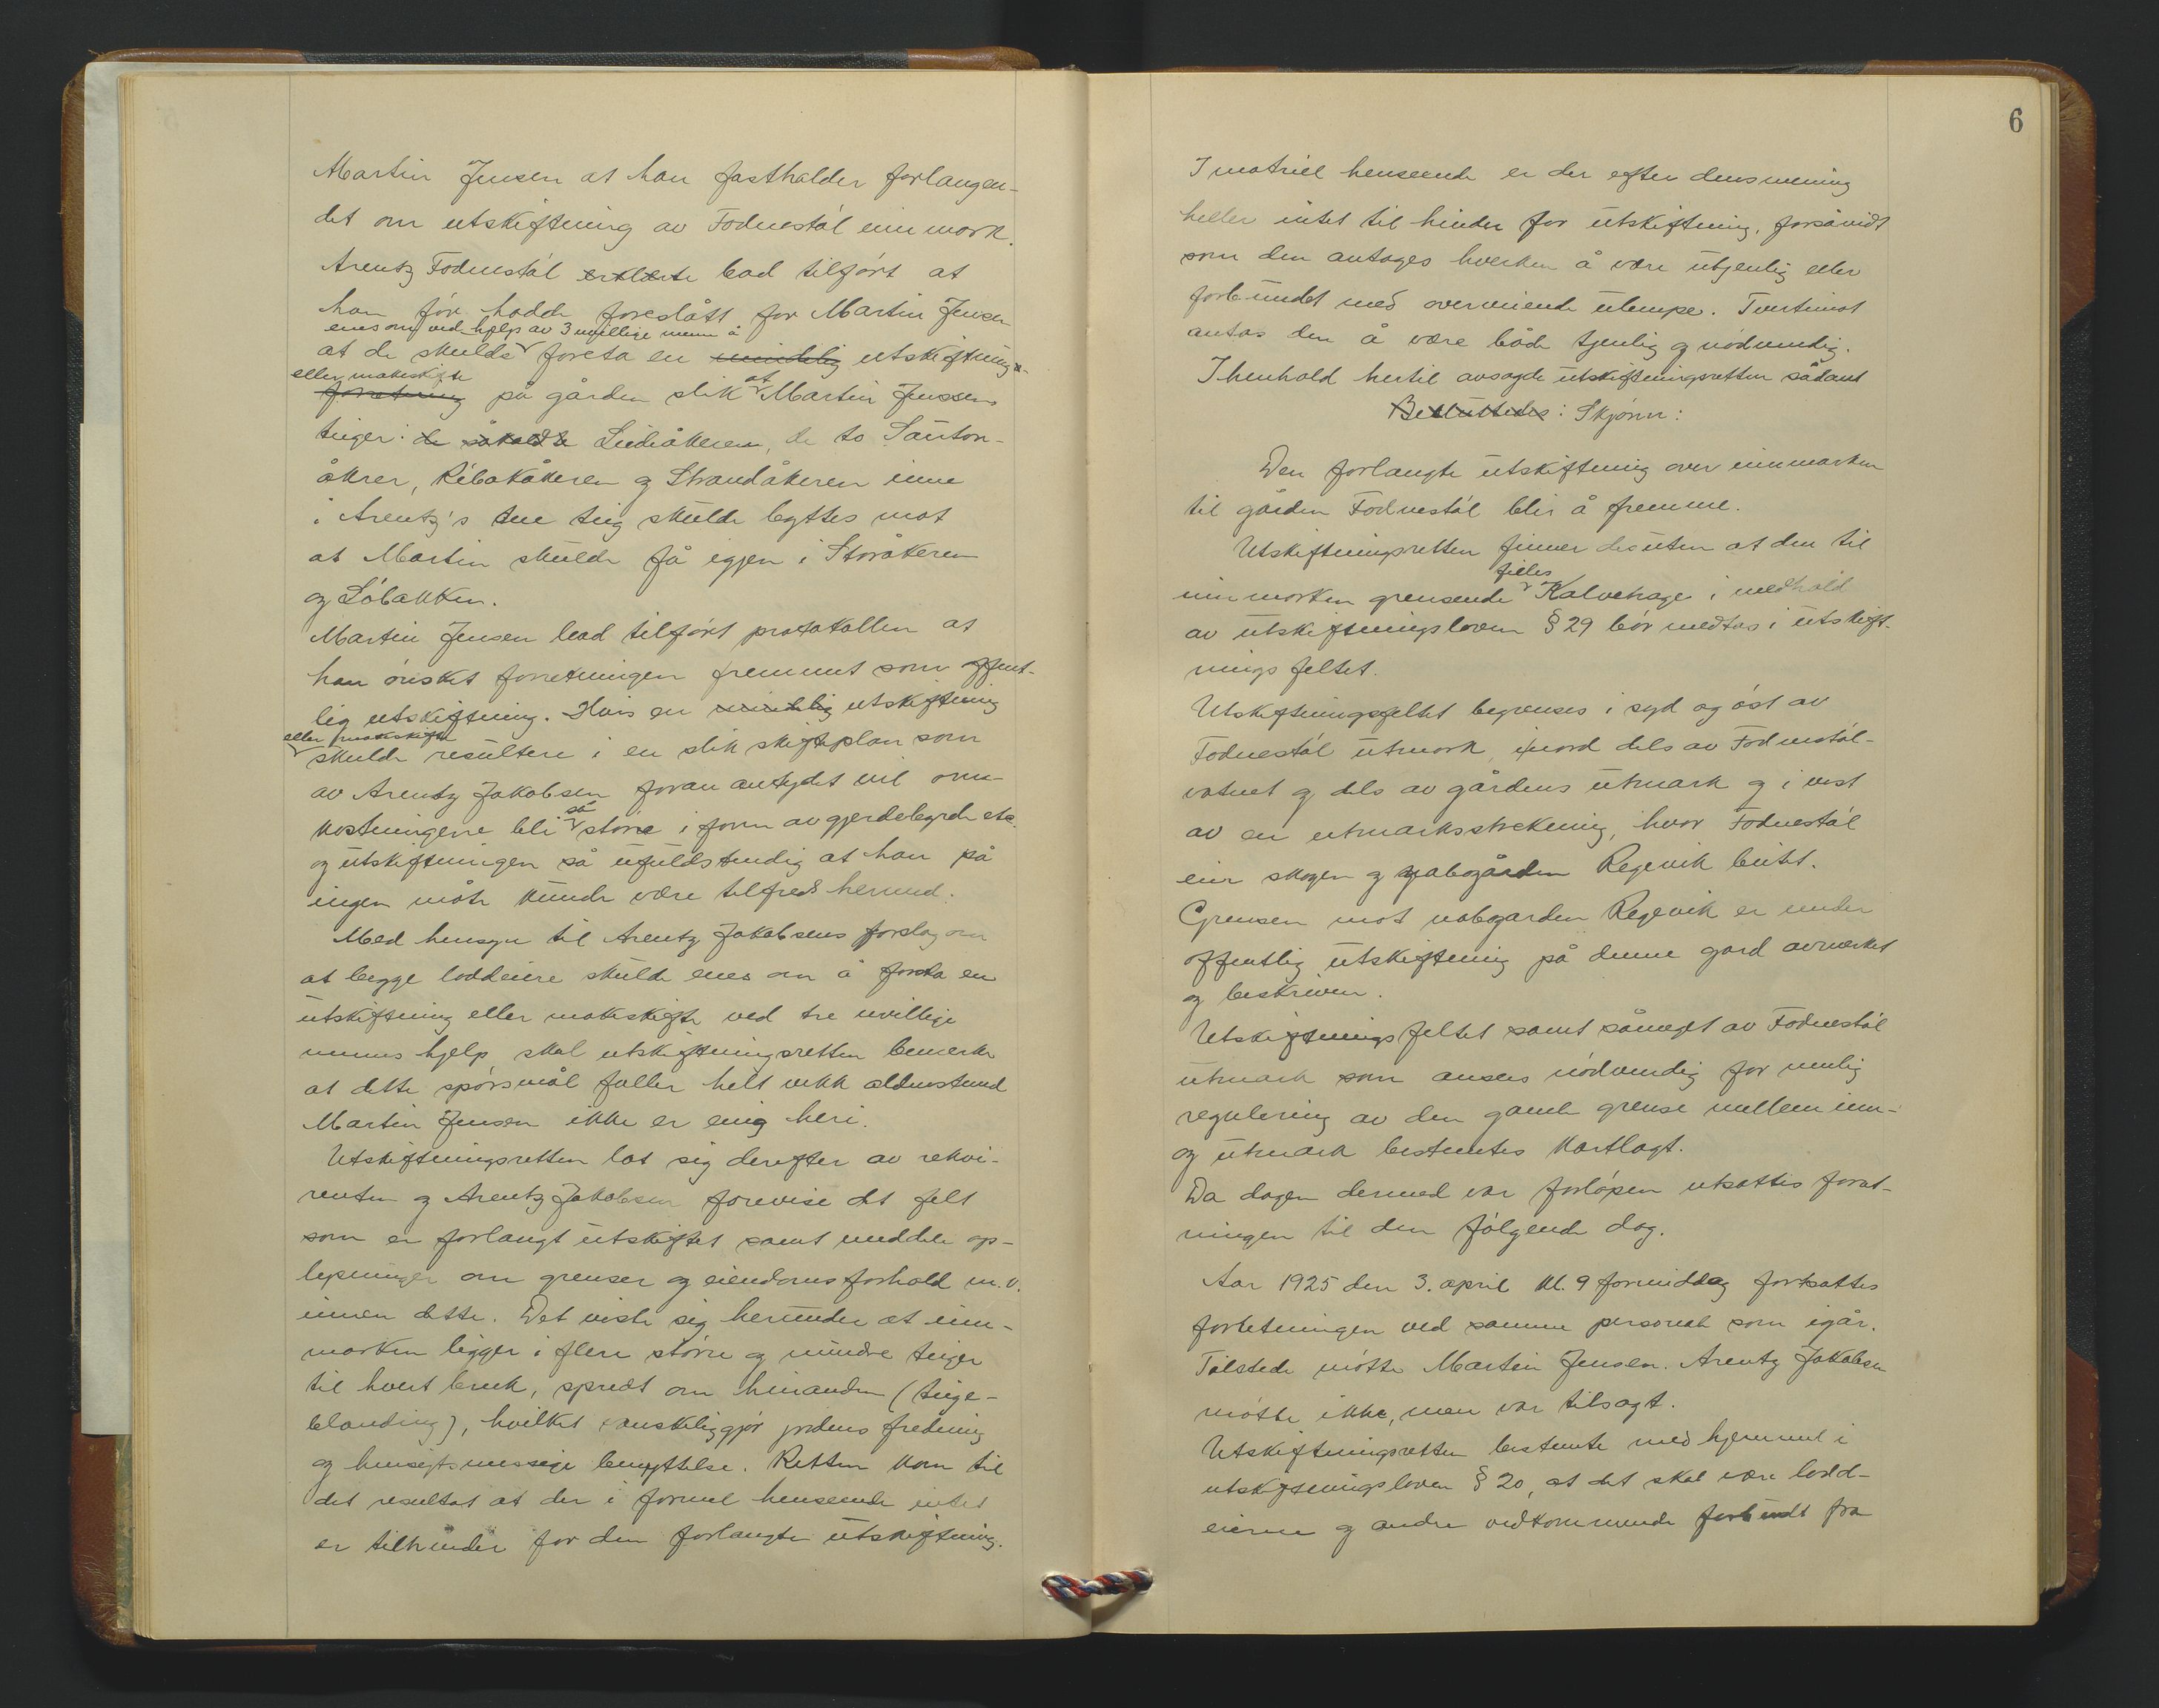 Martin Jensen at han fastholder forlangen-
det om utskiftning av Fodnestöl innmark.
Arentz Fodnestöl erklærte bad tilført at
han før hadde foreslått for Martin Jensen
enes om ved hjelp av 3 uvillige menn å
at de skulde foreta en mindelig utskiftnings-
eller makeskifte
forretning på gården slik at Martin Jensens
teiger: de såkaldte Lidiåkeren, de to Santon-
åkrer, Ribakåkeren og Strandåkeren inne
i Arentz's tue teig skulde byttes mot
at Martin skulde få igjen i Storåkeren
og Löbakken.
Martin Jensen bad tilført protokollen at
han ønsket forretningen fremmet som offent-
lig utskiftning. Hvis en mindelig utskiftning
eller makeskifte
skulde resultere i en slik skifteplan som
av Arentz Jakobsen foran antydet vil om-
kostningene bli så större i form av gjerdebyrde etc.
og utskiftningen så ufuldstendig at han på
ingen måte kunde være tilfreds hermed.
Med hensyn til Arentz Jakobsens forslag om
at begge loddeiere skulde enes om å foreta en
utskiftning eller makeskifte ved tre uvillige
menns hjelp skal utskiftningsretten bemerke
at dette spörsmål faller helt vekk aldenstund
Martin Jensen ikke er enig heri.
Utskiftningsretten lot sig derefter av rekvi-
renten og Arentz Jakobsen forevise det felt
som er forlangt utskiftet samt meddele op-
lysninger om grenser og eiendomsforhold m.v.
innen dette. Det viste sig herunder at inn-
marken ligger i flere större og mindre teiger
til hvert bruk, spredt om hinanden (teige-
blanding), hvilket vanskeliggjør jordens fredning
og hensigtsmessige benyttelse. Retten kom til
det resultat at der i formel henseende intet
er tilhinder for den forlangte utskiftning.
6
I matriel henseende er der efter dens mening
heller intet til hinder for utskiftning, forsåvidt
som den antages hverken å være utjenlig eller
forbundet med overveiende ulempe. Tvertimot
antas den å være både tjenlig og nödvendig.
I henhold hertil avsagde utskiftningsretten sådant
Besluttedes: Skjønn:
Den forlangte utskiftning over innmarken
til gården Fodnestöl blir å fremme.
Utskiftningsretten finner desuten at den til
felles
innmarken grensende Kalvehage i medhold
av utskiftningsloven § 29 bör medtas i utskift-
nings feltet.
Utskiftningsfeltet begrenses i syd og öst av
Fodnestöl utmark, i nord dels av Fodnestöl-
vatnet og dels av gårdens utmark og i vest
av en utmarksstrekning, hvor Fodnestöl
eier skogen og nabogården Regevik beitet.
Grensen mot nabogarden Regevik er under
offentlig utskiftning på denne gard avmerket
og beskriven.
Utskiftnings feltet samt såmeget av Fodnestöl
utmark som anses nödvendig for mulig
regulering av den gamle grense mellem inn-
og utmark bestemtes kartlagt.
Da dagen dermed var forløpen utsattes forret-
ningen til den fölgende dag.
Aar 1925 den 3. april kl. 9 formiddag fortsattes
forretningen ved samme personale som igår.
Tilstede mötte Martin Jensen. Arentz Jakobsen
mötte ikke, men var tilsagt.
Utskiftningsretten bestemte med hjemmel i
utskiftningsloven § 20, at det skal være lodd-
eierne og andre vedkommende forbudt fra